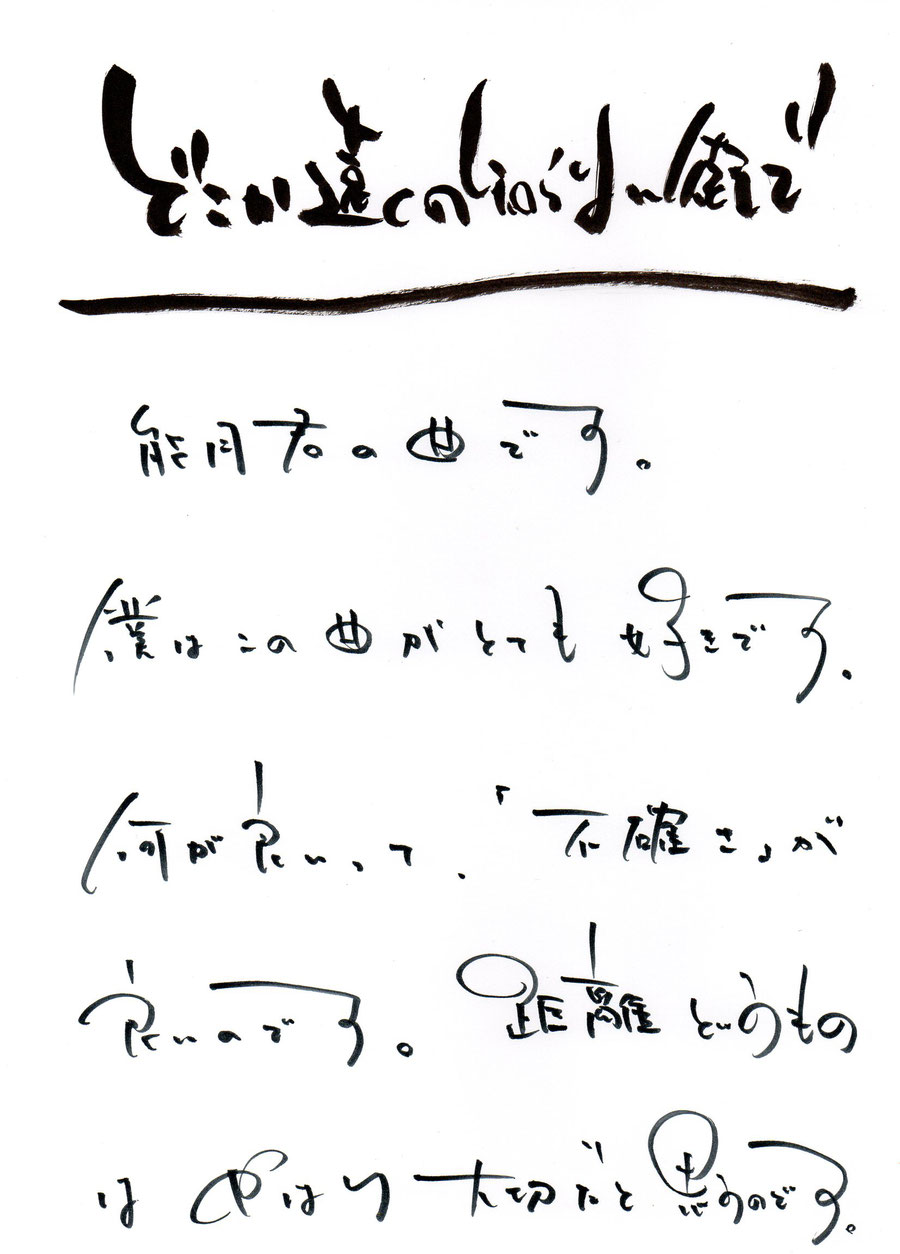 どこか遠くの知らない處で
能月君の曲です。
僕はこの曲がとても好きです。
何が良いって、「不確さ」が
良いのです。距離というもの
はやはり大切だと思うのです。